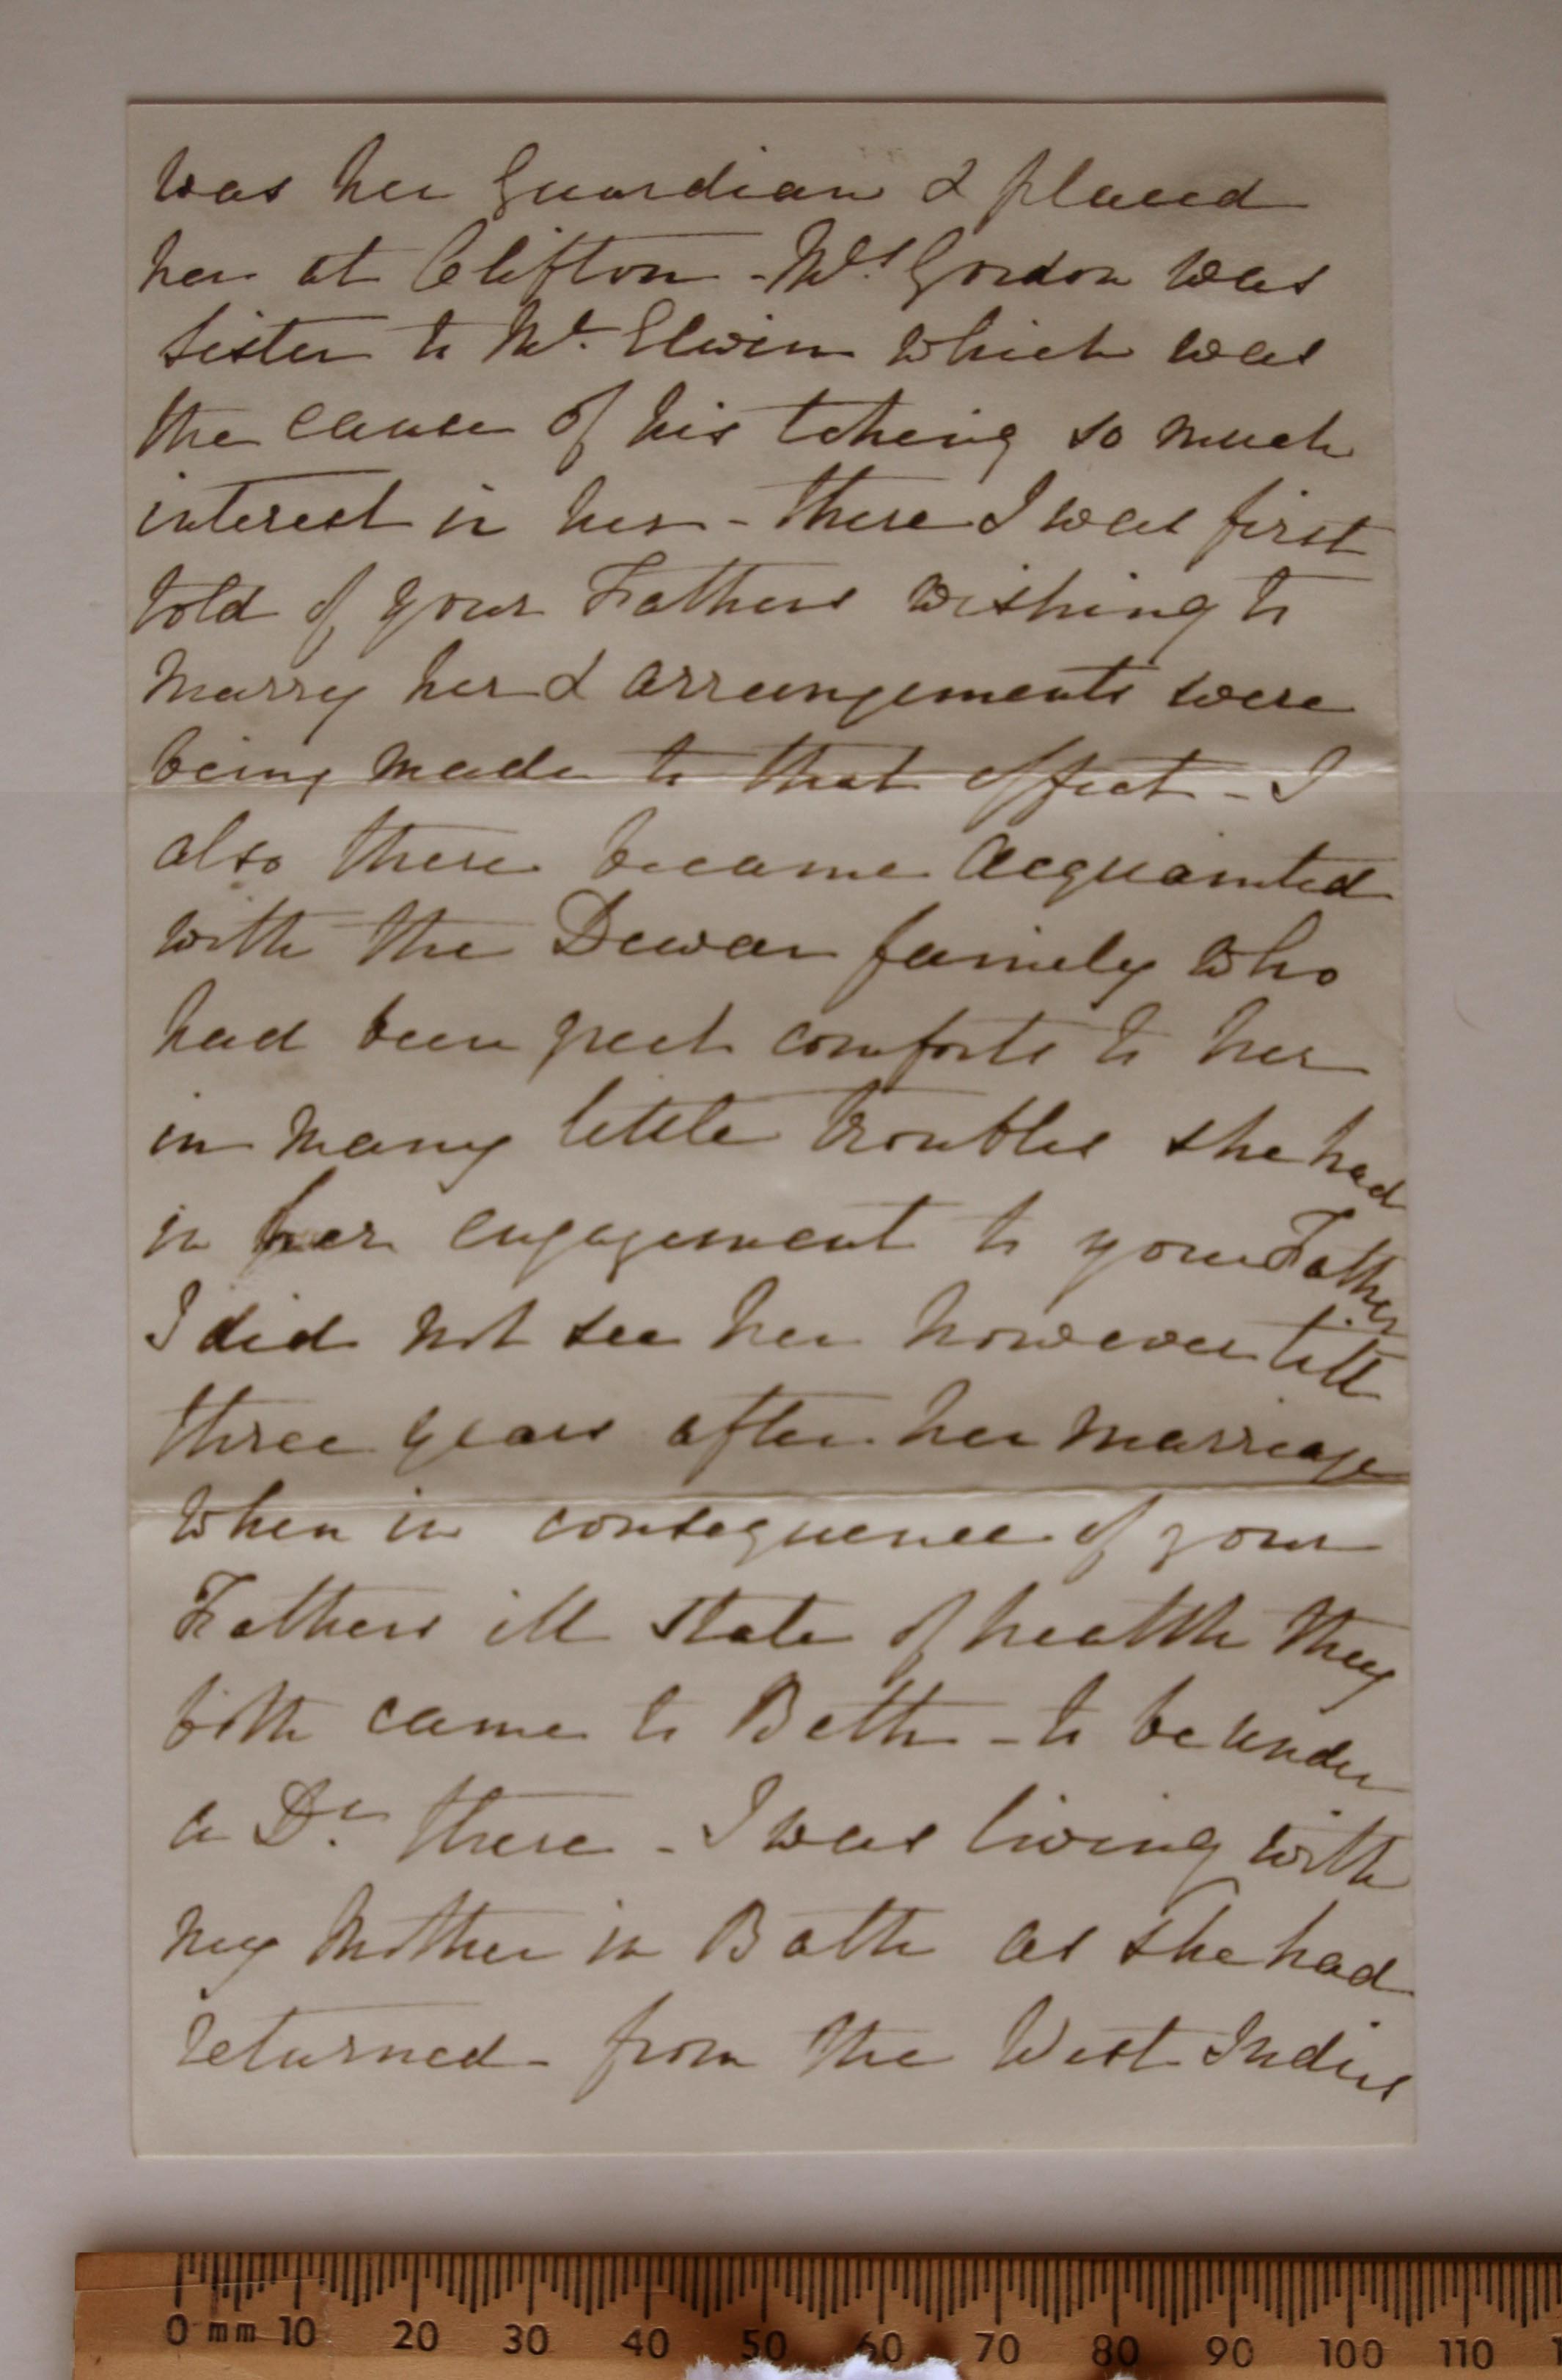 was her Guardian & placed
her at Clifton - Mrs. Gordon was
sister to Mr. Elwin which was
the cause of his taking so much
interest in her - there I was first
told of your Fathers wishing to
marry her & arrangements were
being made to that effect - I
also there became acquainted
with the Dewar family who
had been great comforts to her
in many little troubles she had
in her engagement to your Father
I did not see her however till
three years after her marriage
when in consequence of your
Fathers ill state of health they
both came to Bath - to be under
a Dr. there - I was living with
my Mother in Bath as she had
returned - from the West Indies
0 mm 10 20 30 40 50 60 70 80 90 100 110